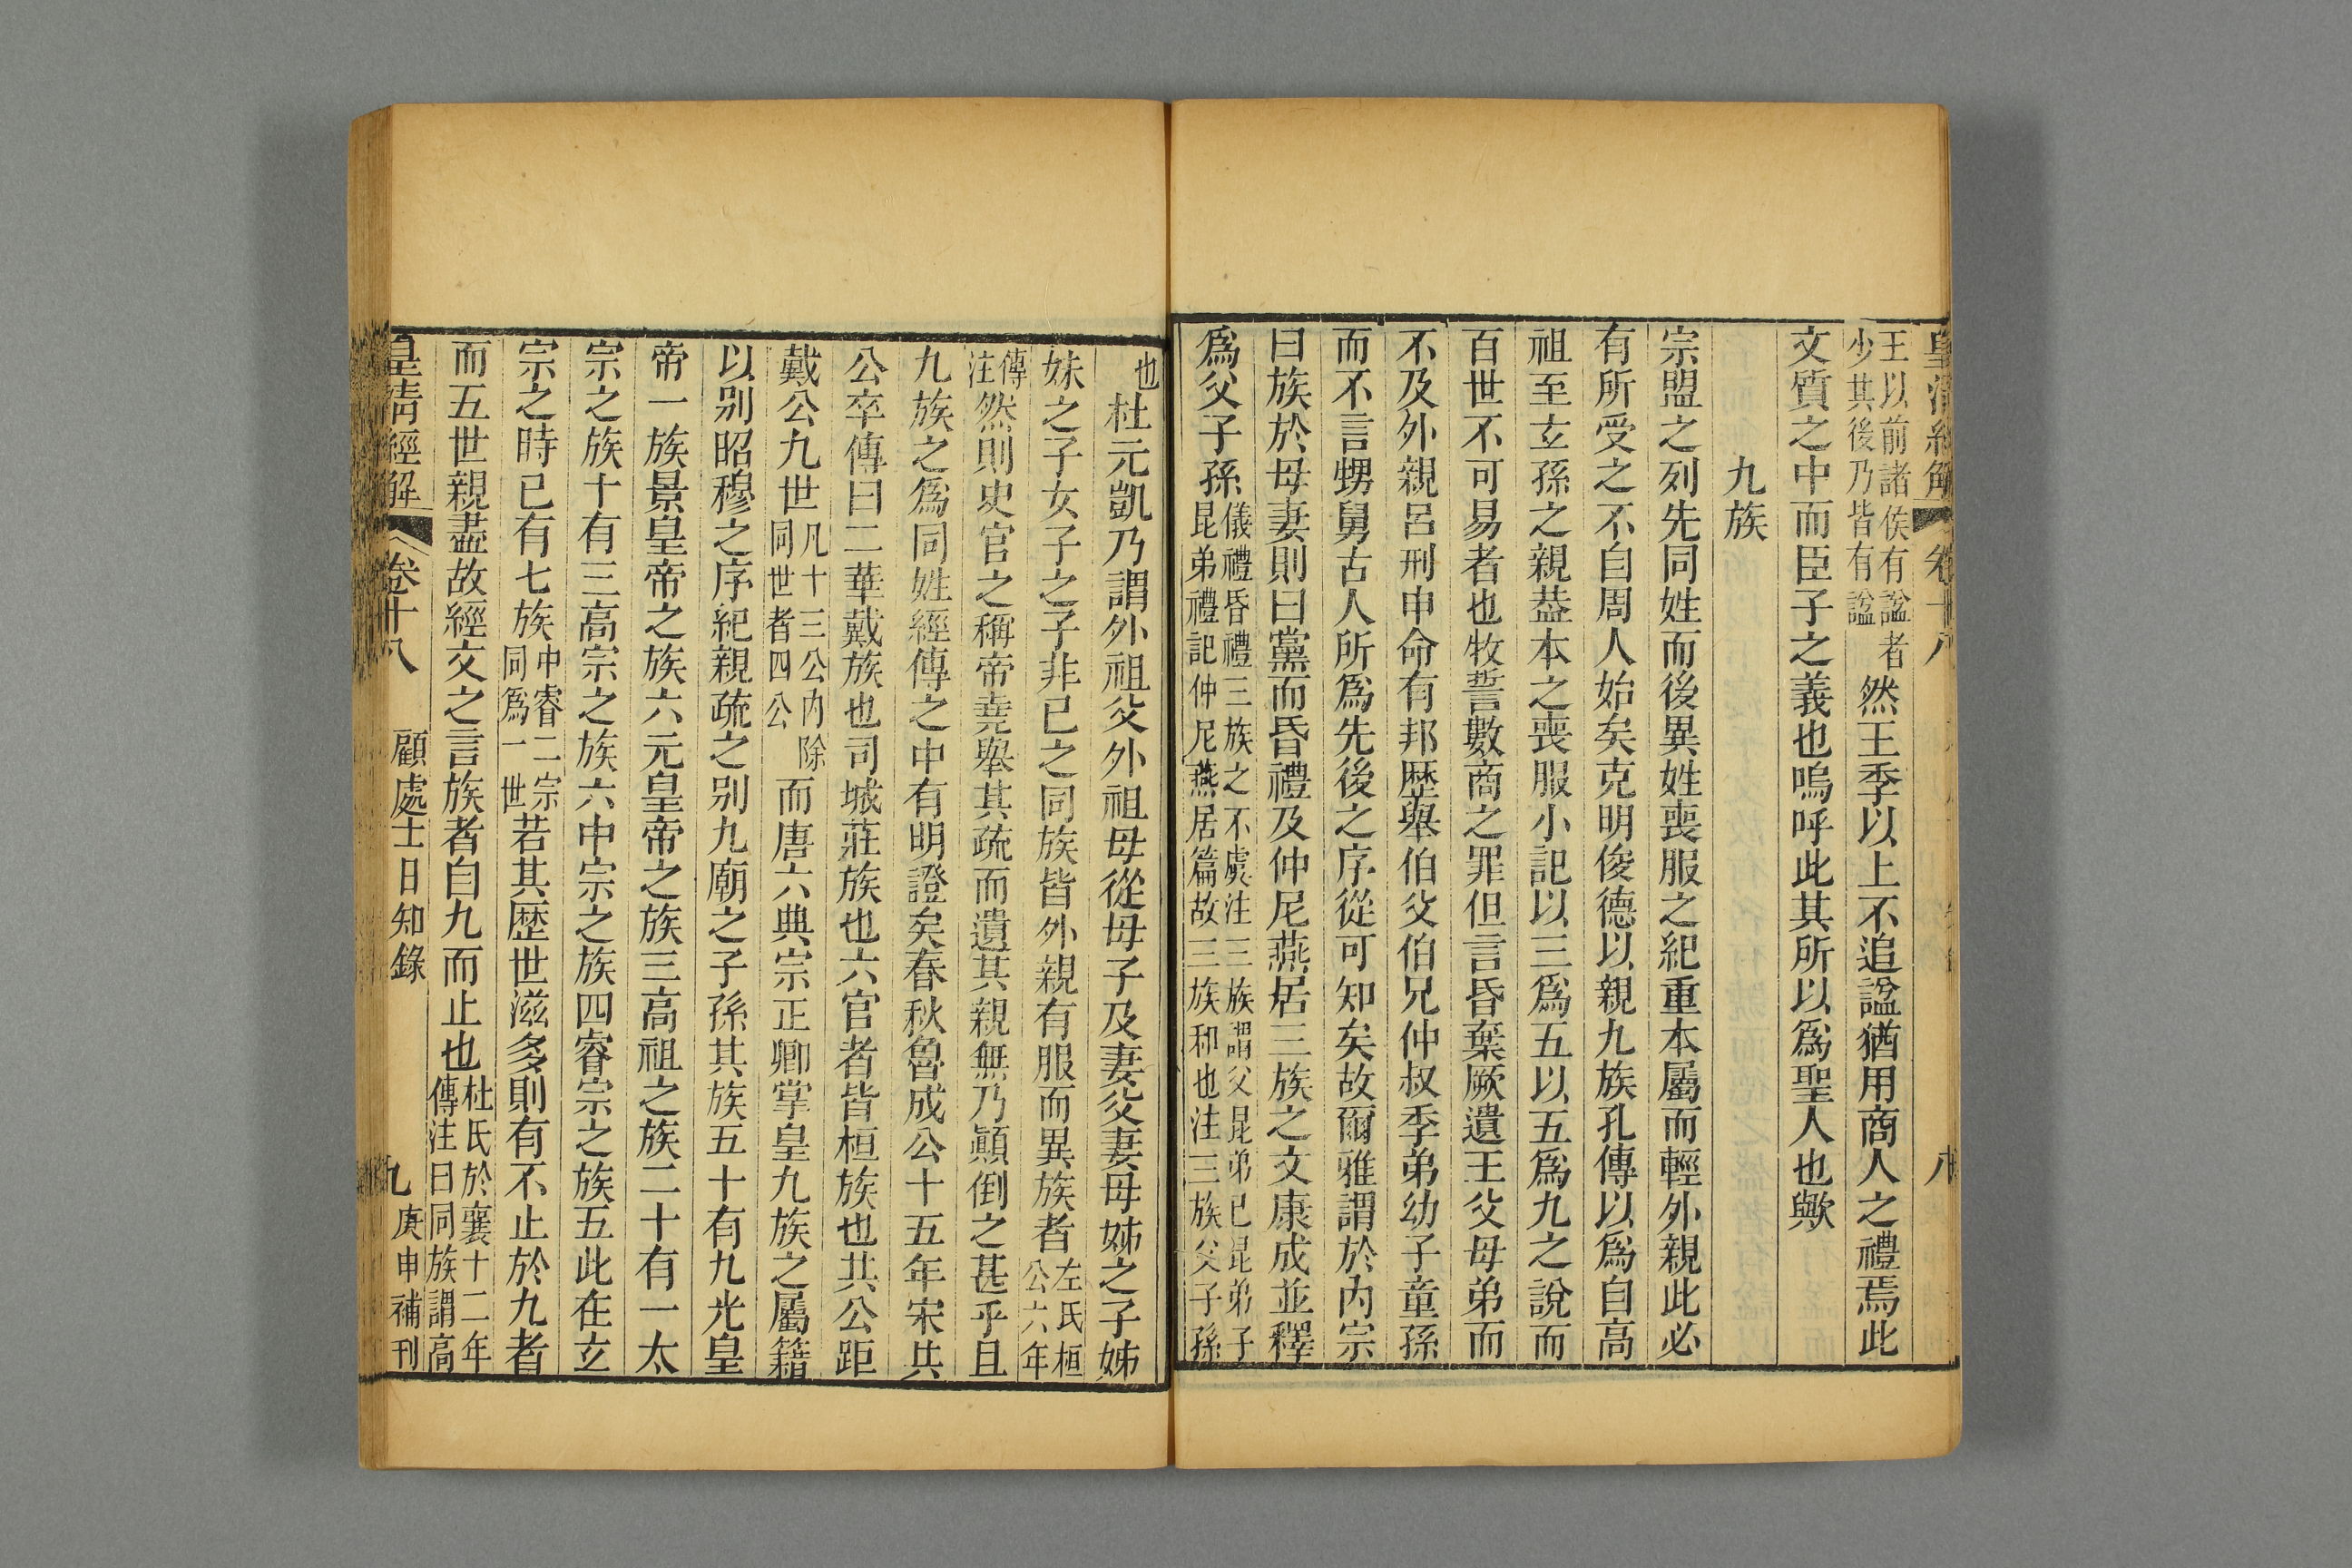 皇清經解 卷十八 八
王以前諸侯有諡者少其後乃皆有諡然王季以上不追諡猶用商人之禮焉此
文質之中而臣子之義也嗚呼此其所以爲聖人也歟
九族
宗盟之列先同姓而後異姓喪服之紀重本屬而輕外親此必
有所受之不自周人始矣克明俊德以親九族孔傳以爲自高
祖至玄孫之親葢本之喪服小記以三爲五以五爲九之說而
百世不可易者也牧誓數商之罪但言昏棄厥遺王父母弟而
不及外親呂刑申命有邦歷舉伯父伯兄仲叔季弟幼子童孫
而不言甥舅古人所爲先後之序從可知矣故爾雅謂於内宗
曰族於母妻則曰黨而昏禮及仲尼燕居三族之文康成並釋
爲父子孫儀禮昏禮三族之不虞注三族謂父昆弟已昆弟子昆弟禮記仲尼燕居篇故三族和也注三族父子孫
也杜元凱乃謂外祖父外祖母從母子及妻父妻母姊之子姊
妹之子女子之子非已之同族皆外親有服而異族者左氏桓公六年
傳注然則史官之稱帝堯舉其疏而遺其親無乃顚倒之甚乎且
九族之爲同姓經傳之中有明證矣春秋魯成公十五年宋共
公卒傳曰二華戴族也司城莊族也六官者皆桓族也共公距
戴公九世凡十三公内除同世者四公而唐六典宗正卿掌皇九族之屬籍
以別昭穆之序紀親疏之別九廟之子孫其族五十有九光皇
帝一族景皇帝之族六元皇帝之族三高祖之族二十有一太
宗之族十有三高宗之族六中宗之族四睿宗之族五此在玄
宗之時已有七族中睿二宗同爲一世若其歷世滋多則有不止於九者
而五世親盡故經文之言族者自九而止也杜氏於襄十二年傳注曰同族謂高
皇清經解 卷十八 顧處士日知錄 九 庚申補刊